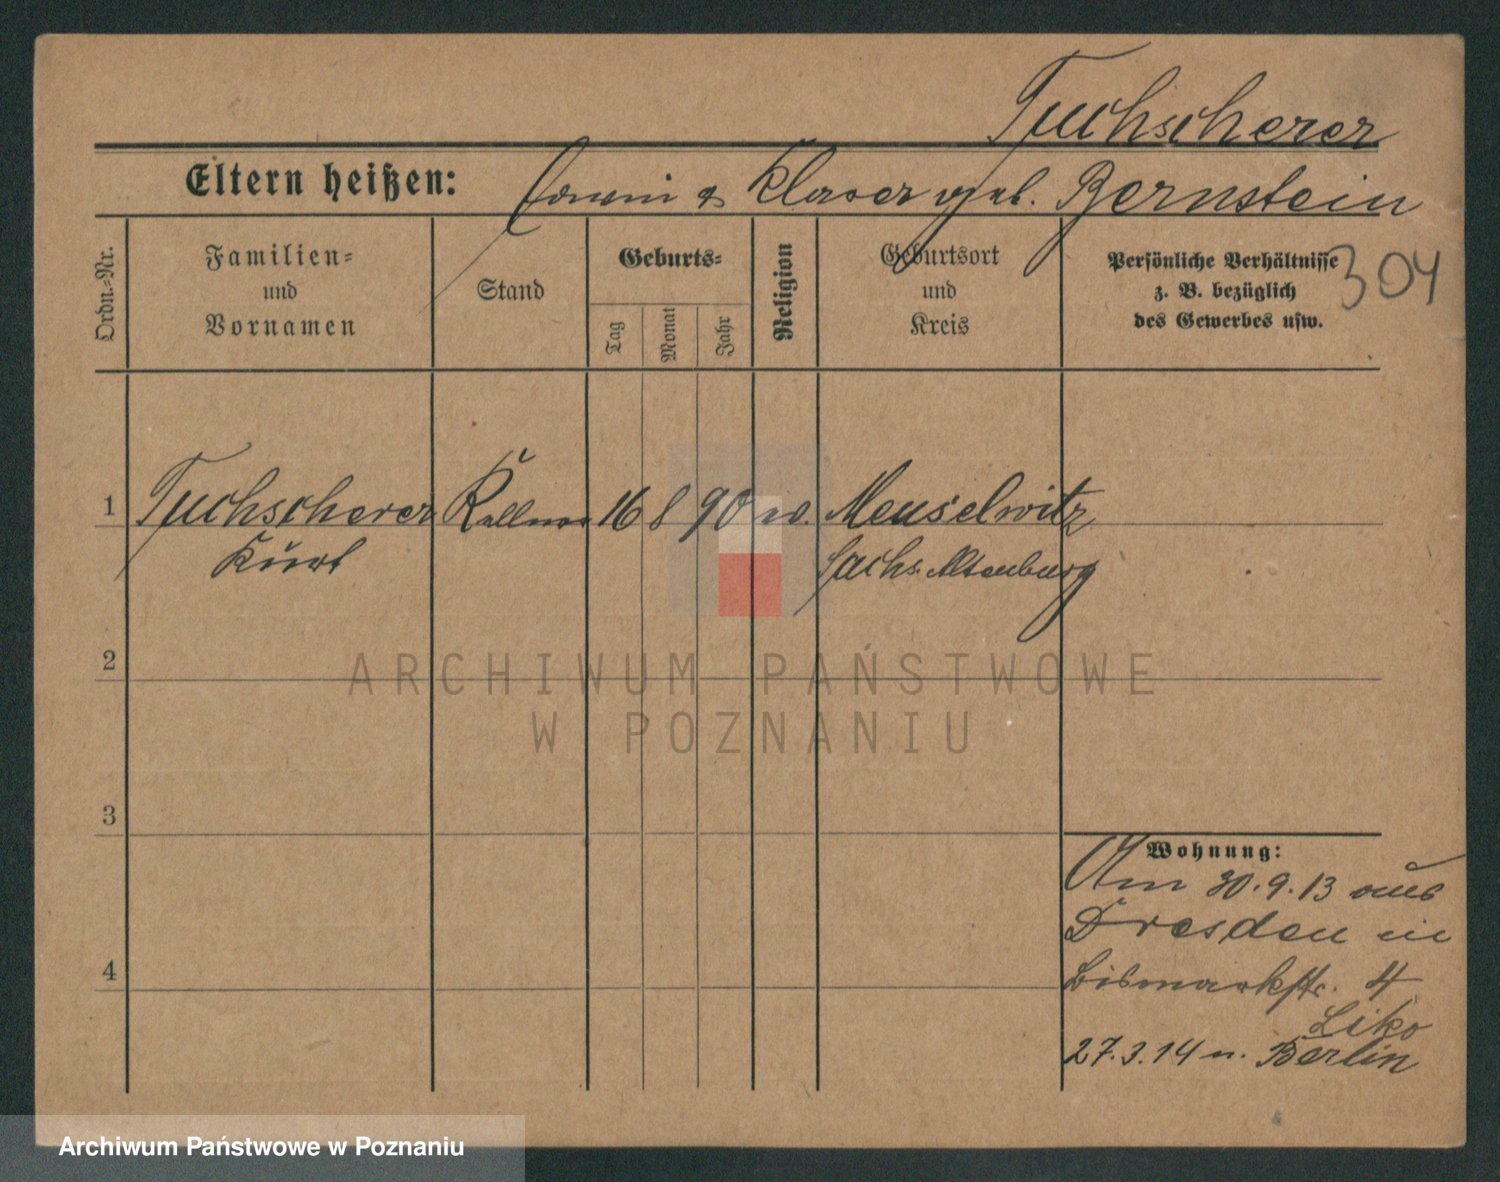 Tuchscherer
Eltern heißen: Erwin & Klara geb. Bernstein
Ordn.-Nr.
Familien-
und
Vornamen
Stand
Geburts-
Tag
Monat
Jahr
Religion
Geburtsort
und
Kreis
Persönliche Verhältnisse
z. B. bezüglich
des Gewerbes usw.
304
1 Tuchscherer Kellner 16 8 90 ev. Meuselwitz
Kurt Sachs. Altenburg
2
3
4
Wohnung:
Am 30.9.13 aus
Dresden in
Bismarkstr. 4
Liko
27.3.14 n. Berlin
ARCHIWUM PAŃSTWOWE
W POZNANIU
Archiwum Państwowe w Poznaniu